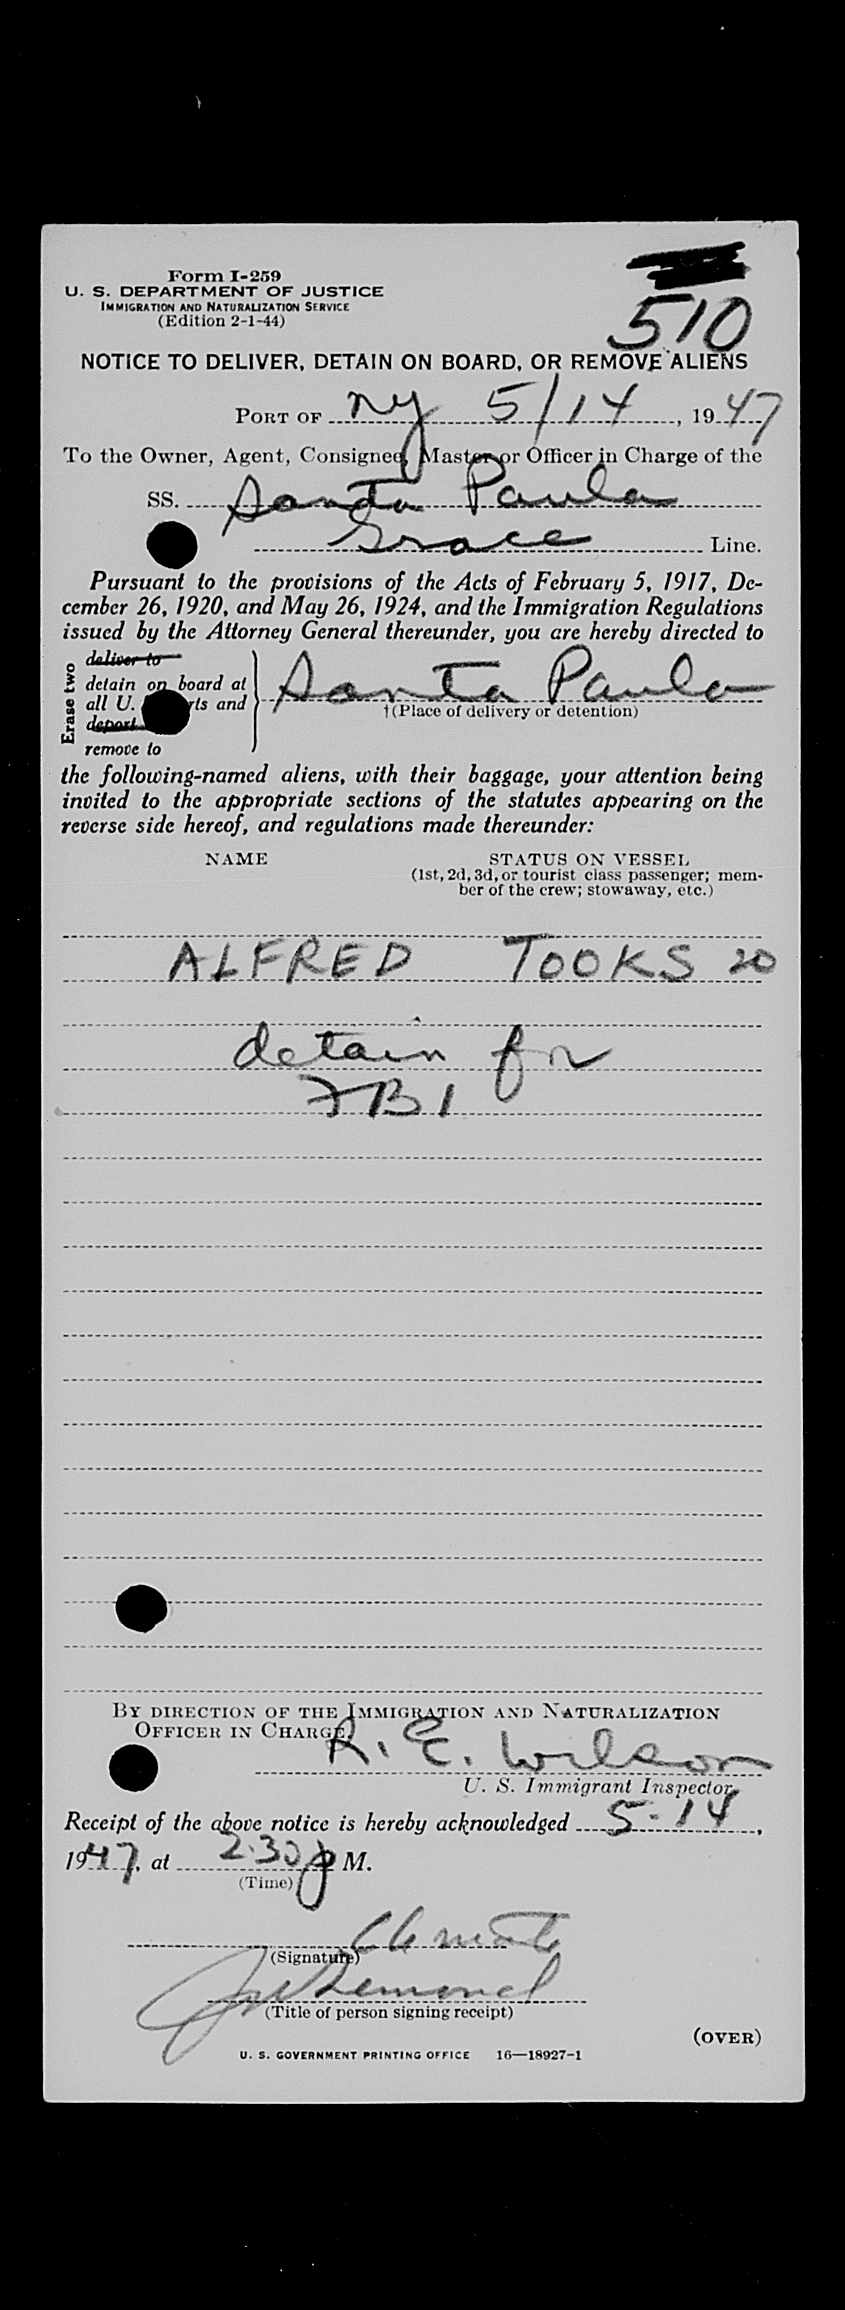 Form I-259
U. S. DEPARTMENT OF JUSTICE
IMMIGRATION AND NATURALIZATION SERVICE
(Edition 2-1-44)
510
NOTICE TO DELIVER, DETAIN ON BOARD, OR REMOVE ALIENS
PORT OF NY 5/14, 1947
To the Owner, Agent, Consignee, Master or Officer in Charge of the
SS. Santa Paula
Grace Line.
Pursuant to the provisions of the Acts of February 5, 1917, De-
cember 26, 1920, and May 26, 1924, and the Immigration Regulations
issued by the Attorney General thereunder, you are hereby directed to
Erase two
deliver to
detain on board at
all U. and
deport
remove to
Santa Paula
†(Place of delivery or detention)
the following-named aliens, with their baggage, your attention being
invited to the appropriate sections of the statutes appearing on the
reverse side hereof, and regulations made thereunder:
NAME STATUS ON VESSEL
(1st, 2d, 3d, or tourist class passenger; mem-
ber of the crew; stowaway, etc.)
ALFRED TOOKS 20
detain for
FBI
BY DIRECTION OF THE IMMIGRATION AND NATURALIZATION
OFFICER IN CHARGE.
R. E. Wilson
U. S. Immigrant Inspector.
Receipt of the above notice is hereby acknowledged 5-14,
1947, at 2:30 p M.
(Time)
(Signature)
(Title of person signing receipt)
(OVER)
U. S. GOVERNMENT PRINTING OFFICE 16—18927-1